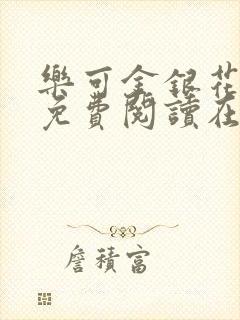 樂可金銀花
免費閱讀在
詹積富